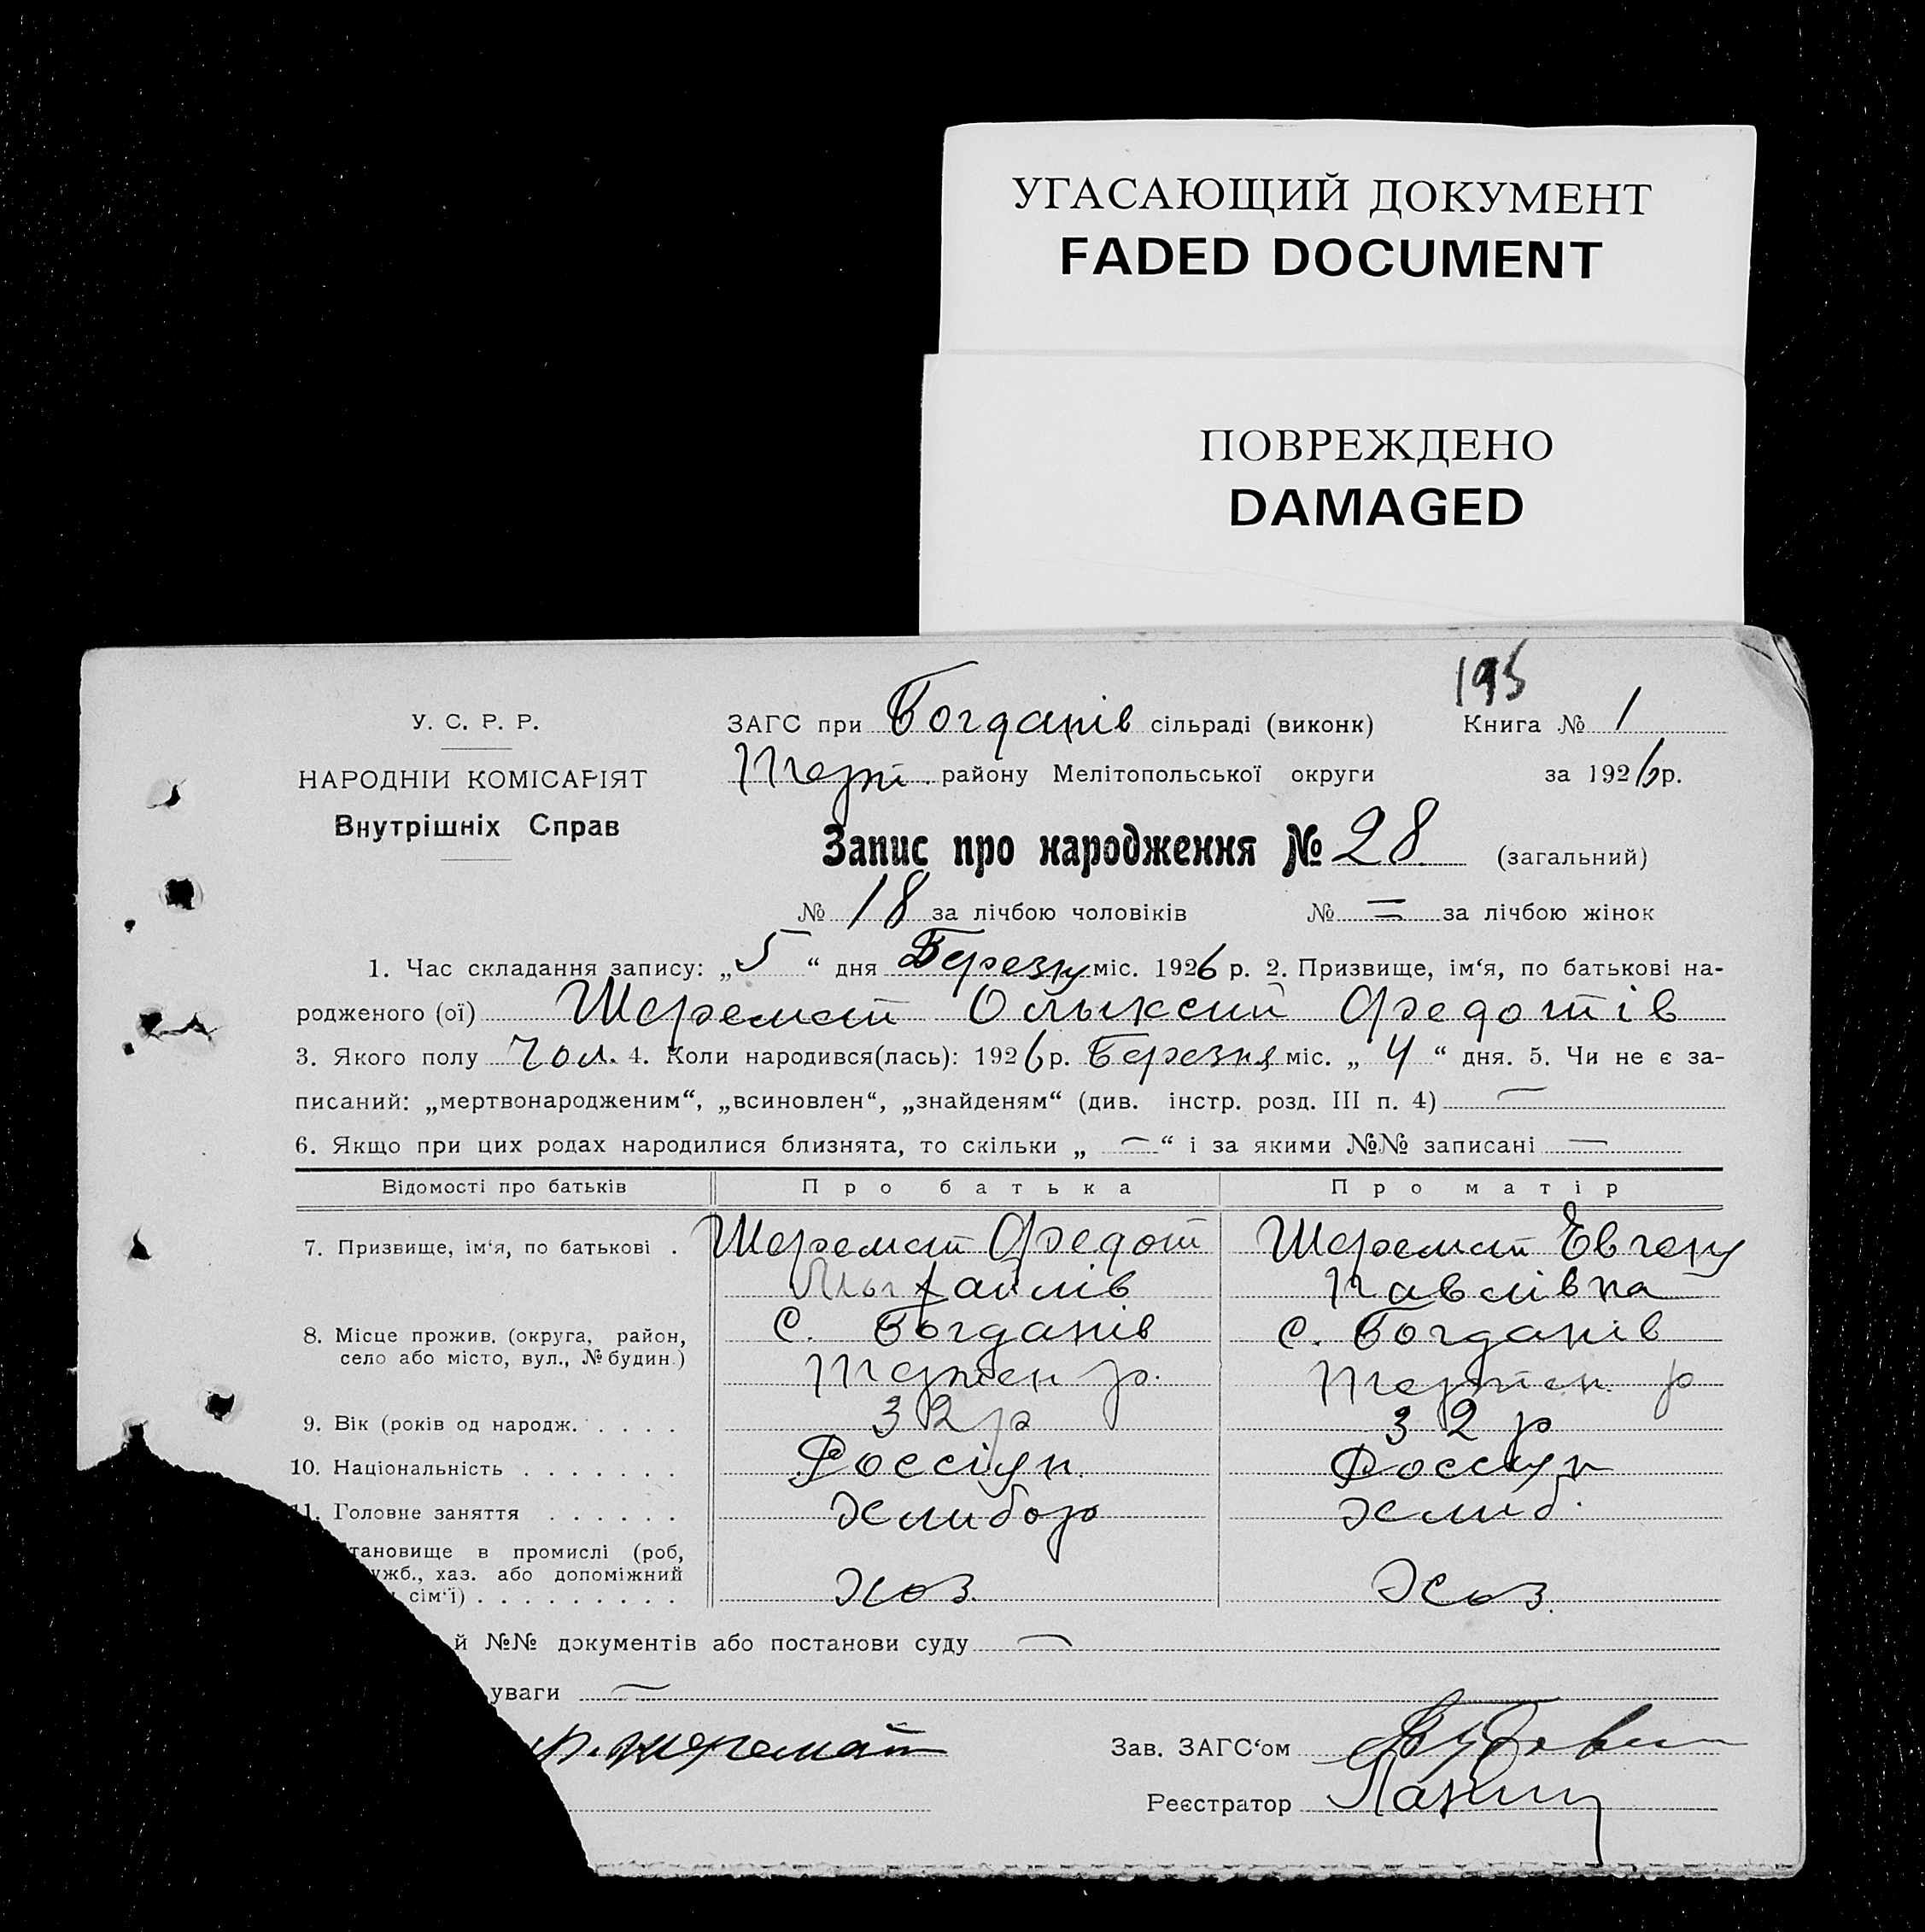 УГАСАЮЩИЙ ДОКУМЕНТ
FADED DOCUMENT
ПОВРЕЖДЕНО
DAMAGED
195
У. С. Р. Р.
НАРОДНІЙ КОМІСАРІЯТ
Внутрішніх Справ
ЗАГС при Богданів сільраді (виконк) Книга № 1
району Мелітопольської округи за 1926 р.
Запис про народження № 28 (загальний)
№ 18 за лічбою чоловіків № = за лічбою жінок
1. Час складання запису: „5“ дня Березня міс. 1926 р. 2. Призвище, ім‘я, по батькові на-
родженого (ої) Шеремет Олыксий Федотів
3. Якого полу Чол. 4. Коли народився(лась): 1926 р. Березня міс. „4“ дня. 5. Чи не є за-
писаний: „мертвонародженим“, „всиновлен“, „знайденям“ (див. інстр. розд. III п. 4) —
6. Якщо при цих родах народилися близнята, то скільки „—“ і за якими №№ записані —
Відомості про батьків Про батька Про матір
7. Призвище, ім‘я, по батькові . Шеремет Федот Шеремет Евгену
Мыхайлів Павлівна
8. Місце прожив. (округа, район, село або місто, вул., № будин.) С. Богданів С. Богданів
р. р
9. Вік (років од народж. . . . . 32 р 32 р
10. Національність . . . . . . . Россіян. Россиян
11. Головне заняття . . . . . . Хлибор Хлиб.
тановище в промислі (роб,
ужб., хаз. або допоміжний
сім‘ї) . . . . . . . . . Хоз. Хоз.
й №№ документів або постанови суду —
уваги —
Ф. Шеремет Зав. ЗАГС‘ом
Реєстратор